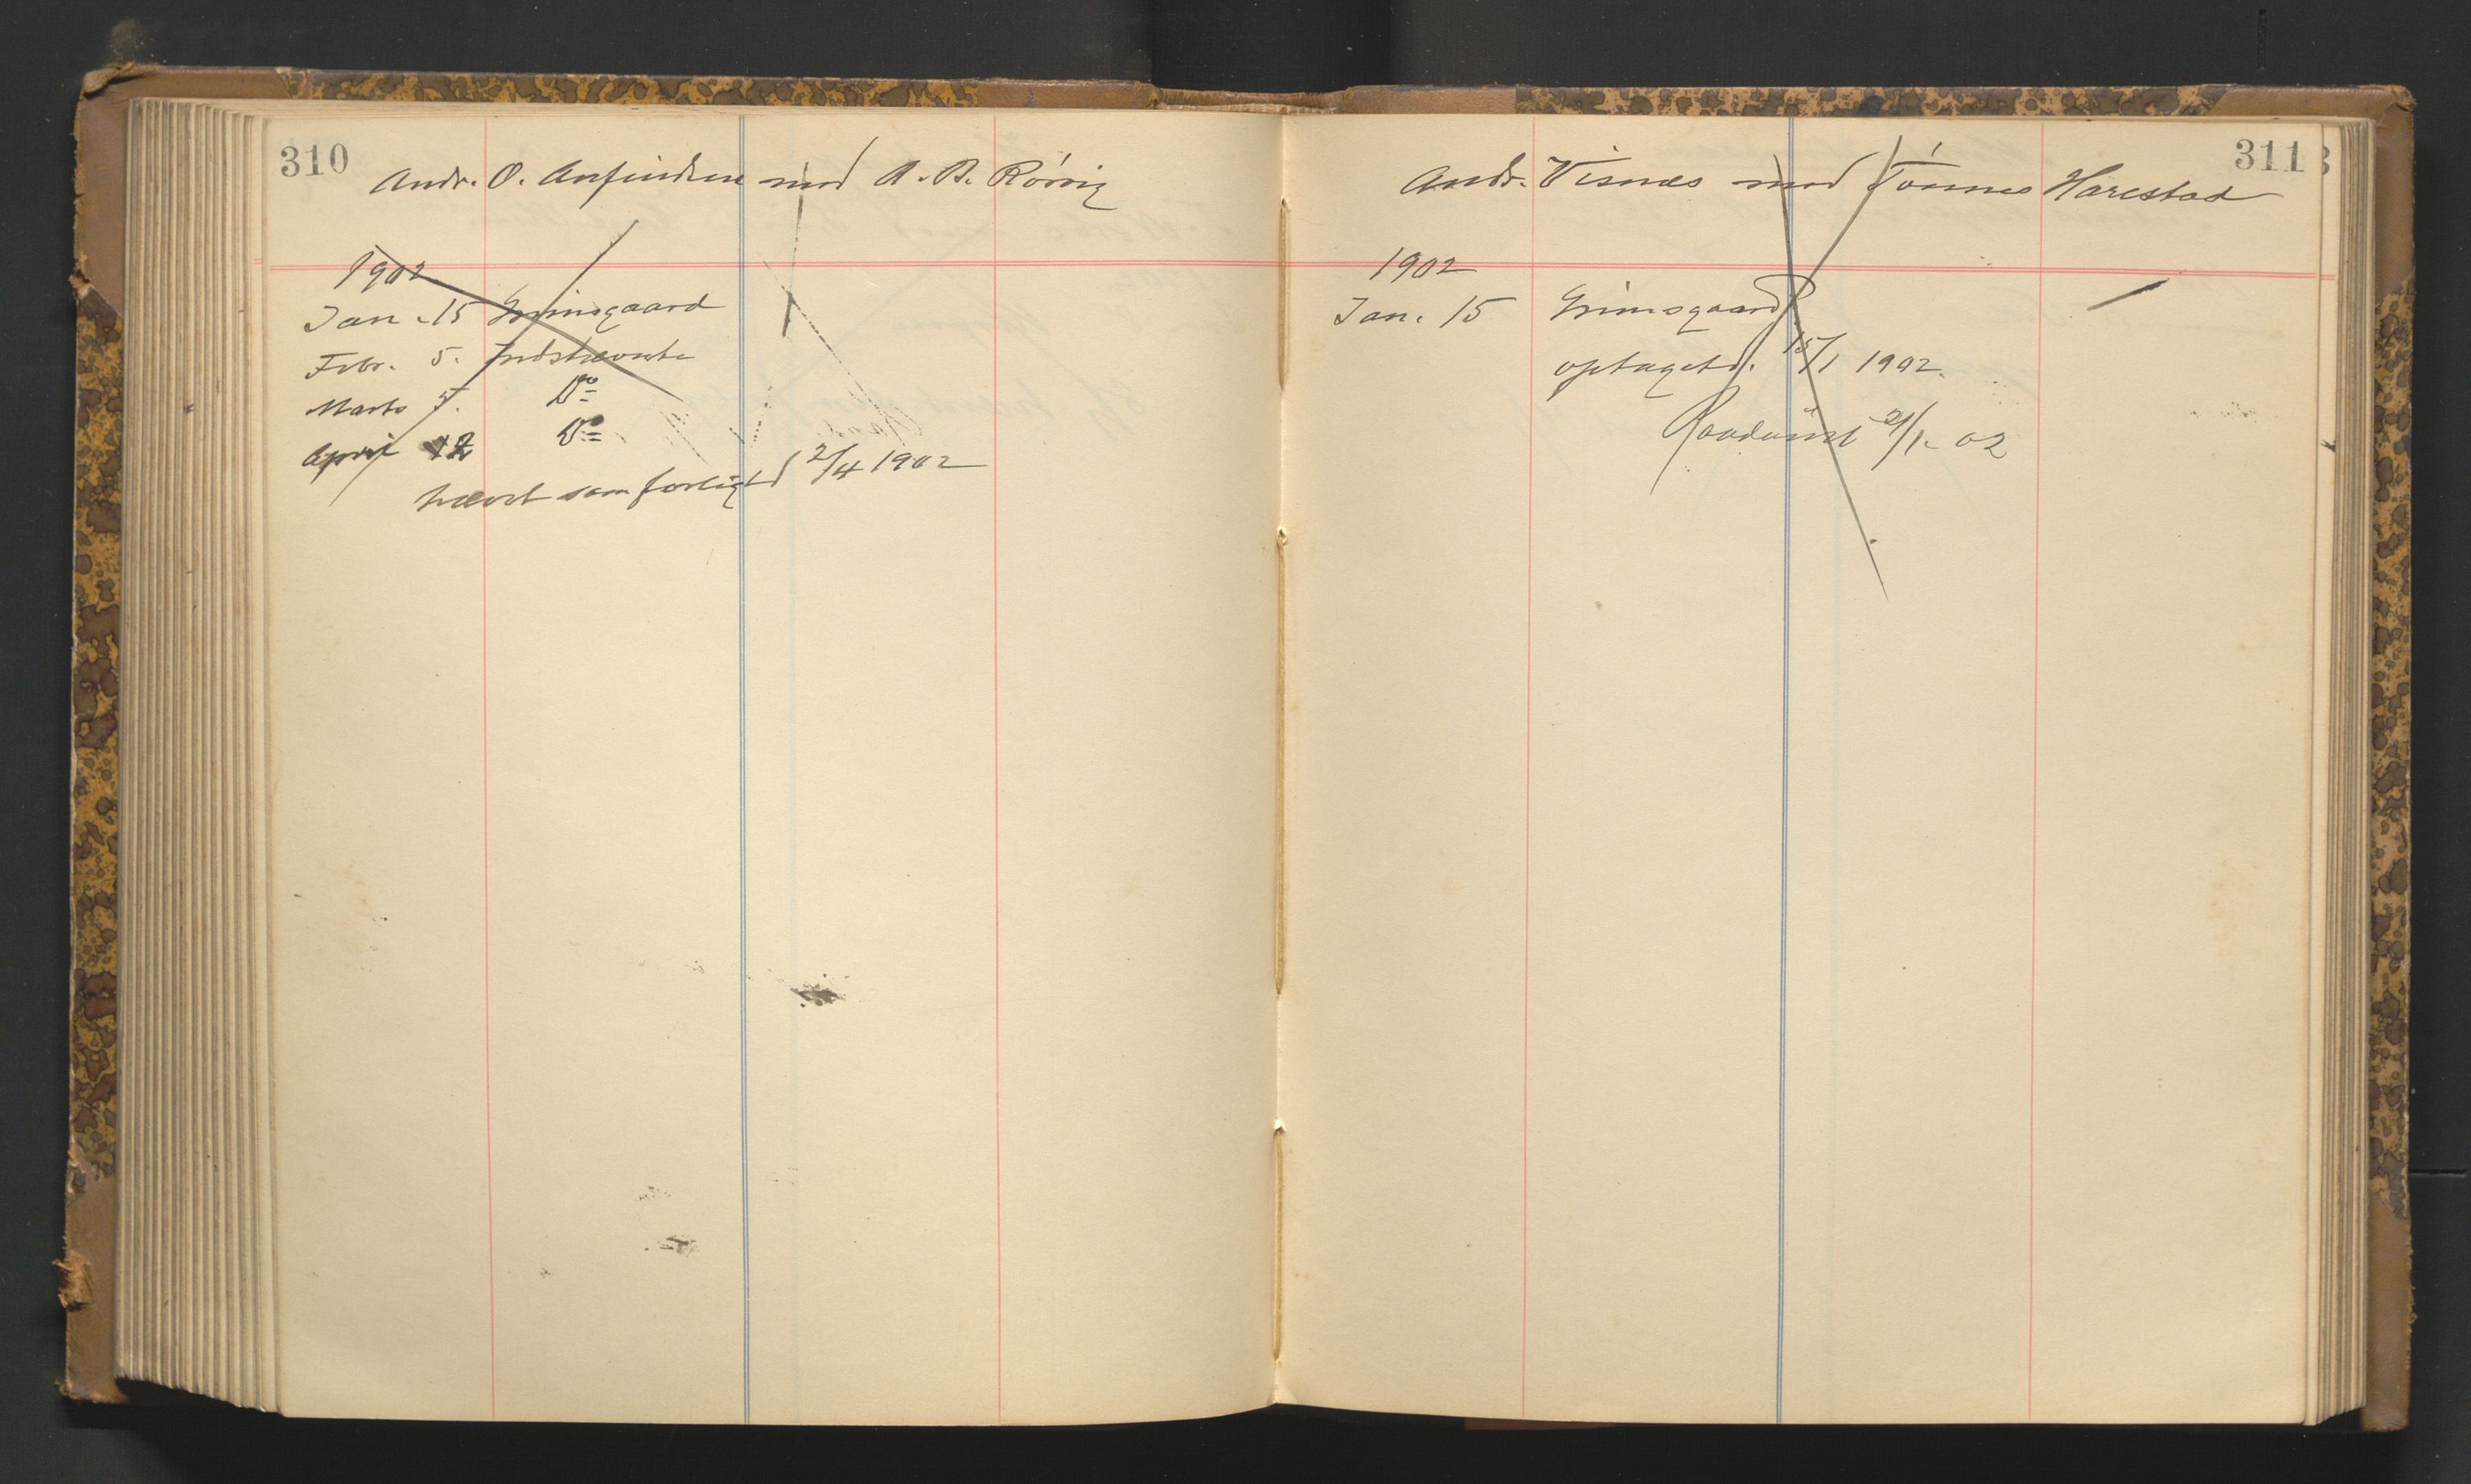 310
Andr. O. Anfindsen mod A. B. Rörvig
1902
Jan. 15 Grimsgaard
Febr. 5. Indstevnte
Marts 5. Do
April 2 Do
hævet som forligt d 2/4 1902
311
Andr. Visnæs mod Tönnes Harestad
1902
Jan. 15 Grimsgaard
optaget d. 15/1 1902.
21/1 - 02